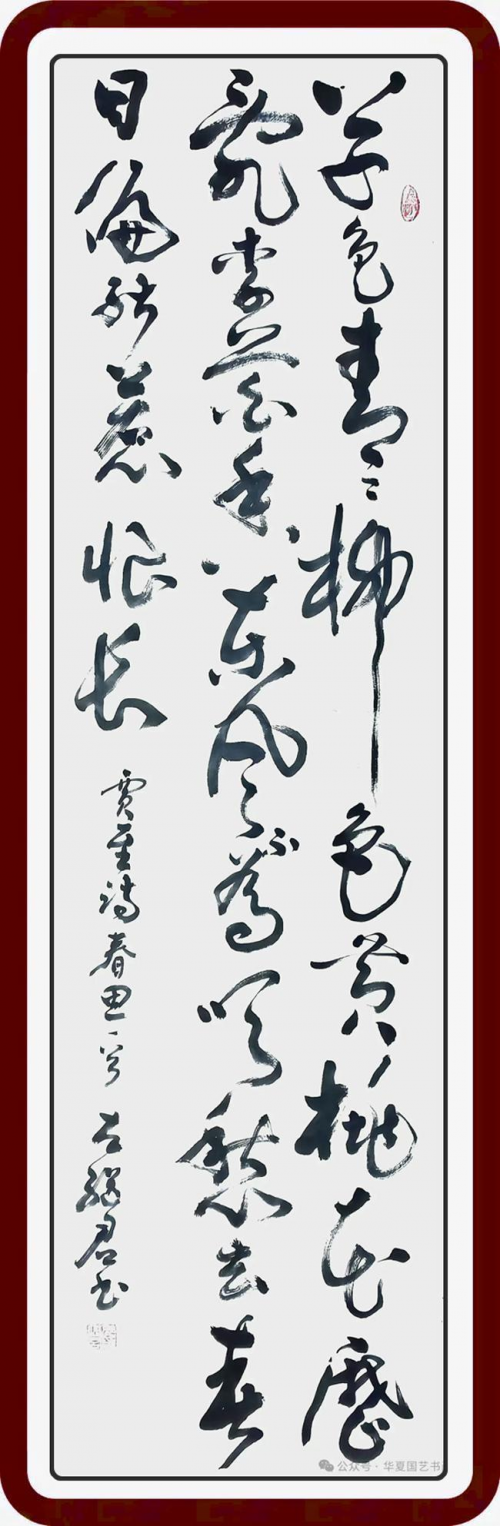 草色青々柳色黄桃花歷
亂李花香东风不為吹愁去春
日偏能惹恨长
贾至诗春思一首 继君书
公众号 · 华夏国艺书